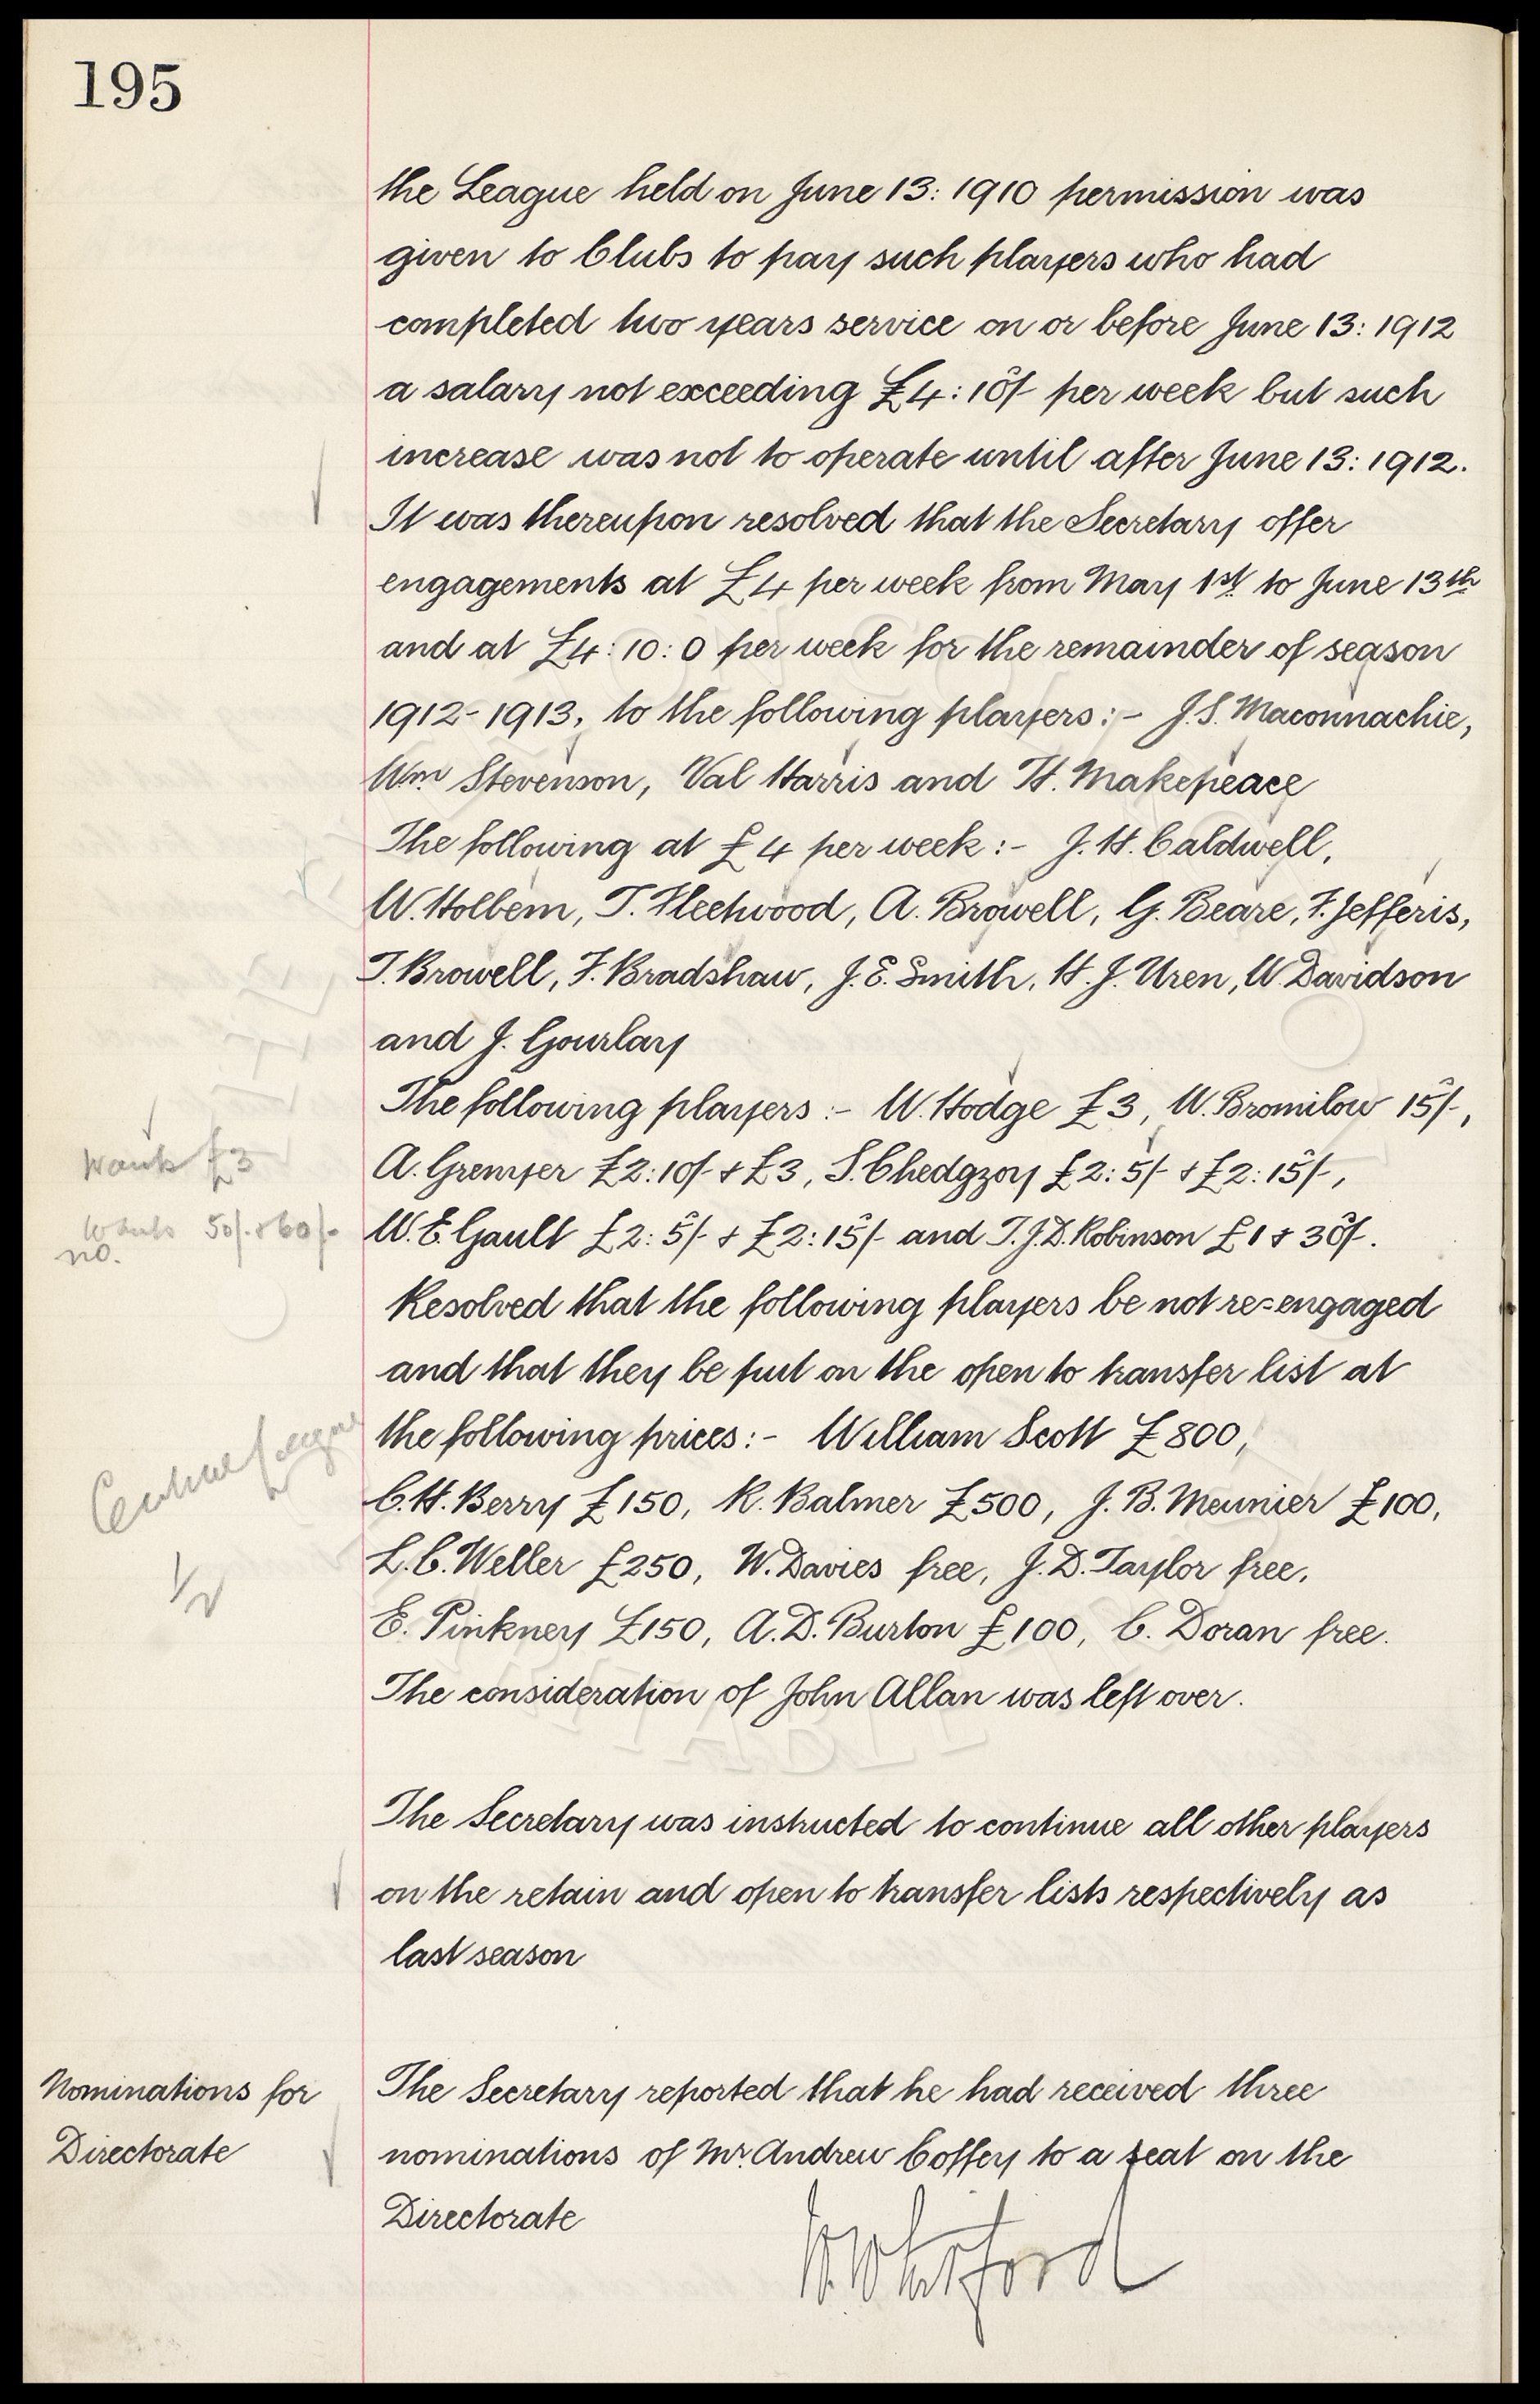 195
the League held on June 13: 1910 permission was
given to Clubs to pay such players who had
completed two years service on or before June 13: 1912
a salary not exceeding £4: 10/- per week but such
increase was not to operate until after June 13: 1912.
It was thereupon resolved that the Secretary offer
engagements at £4 per week from May 1st to June 13th
and at £4: 10: 0 per week for the remainder of season
1912-1913, to the following players:- J.S. Maconnachie,
Wm Stevenson, Val Harris and H. Makepeace
The following at £4 per week:- J.H. Caldwell,
W. Holbem, T. Fleetwood, A. Browell, G. Beare, F. Jefferis,
T. Browell, F. Bradshaw, J.E. Smith, H.J. Uren, W. Davidson
and J. Gourlay
The following players:- W. Hodge £3, W. Bromilow 15/-,
Wants £3
A. Grenyer £2: 10/- + £3, S. Chedgzoy £2: 5/- + £2: 15/-,
Wants 50/- & 60/-
no.
W.E. Gault £2: 5/- + £2: 15/- and T.J.D. Robinson £1 + 30/-.
Resolved that the following players be not re-engaged
and that they be put on the open to transfer list at
Central League
the following prices:- William Scott £800,
C.H. Berry £150, R. Balmer £500, J.B. Meunier £100,
1/2
L.C. Weller £250, W. Davies free, J.D. Taylor free,
E. Pinkney £150, A.D. Burton £100, C. Doran free.
The consideration of John Allan was left over.
The Secretary was instructed to continue all other players
on the retain and open to transfer lists respectively as
last season
Nominations for
Directorate
The Secretary reported that he had received three
nominations of Mr. Andrew Coffey to a seat on the
Directorate
W Whitford